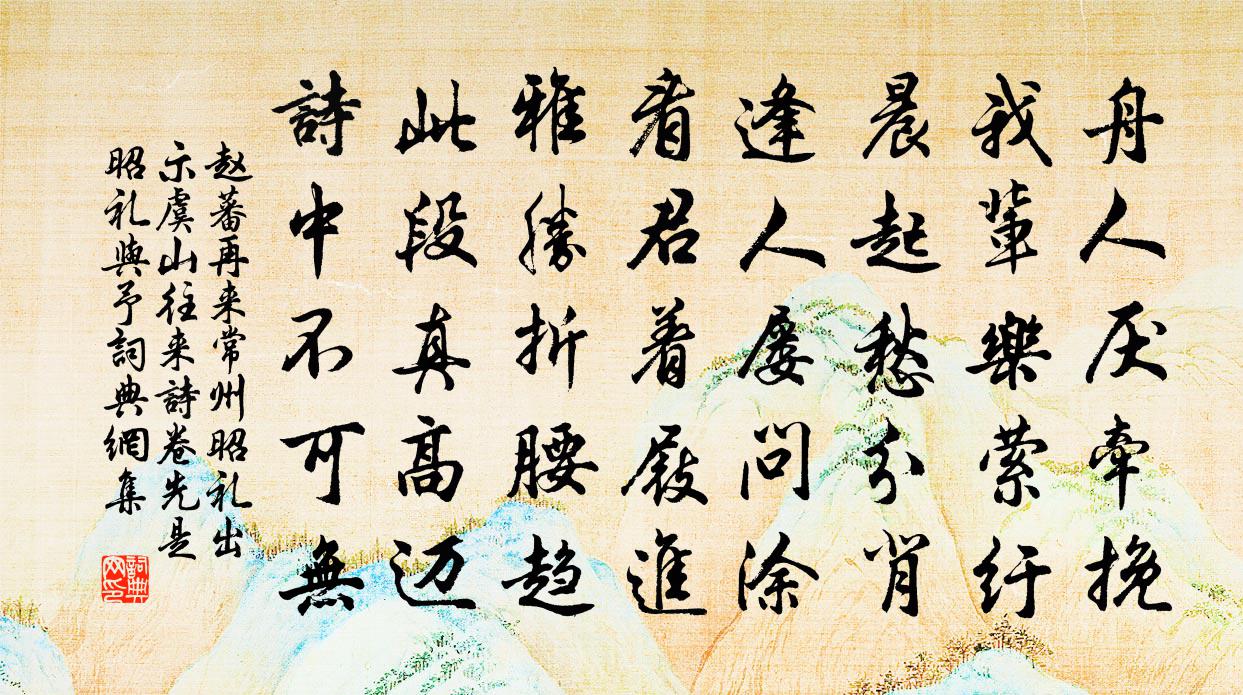 舟人厌牵挽
我辈樂萦纡
晨起愁分背
逢人屡问涂
看君着屐進
雅勝折腰趋
此段真高迈
詩中不可無
赵蕃再来常州昭礼出
示虞山往来詩卷先是
昭礼與予詞典網集
詞典
网印